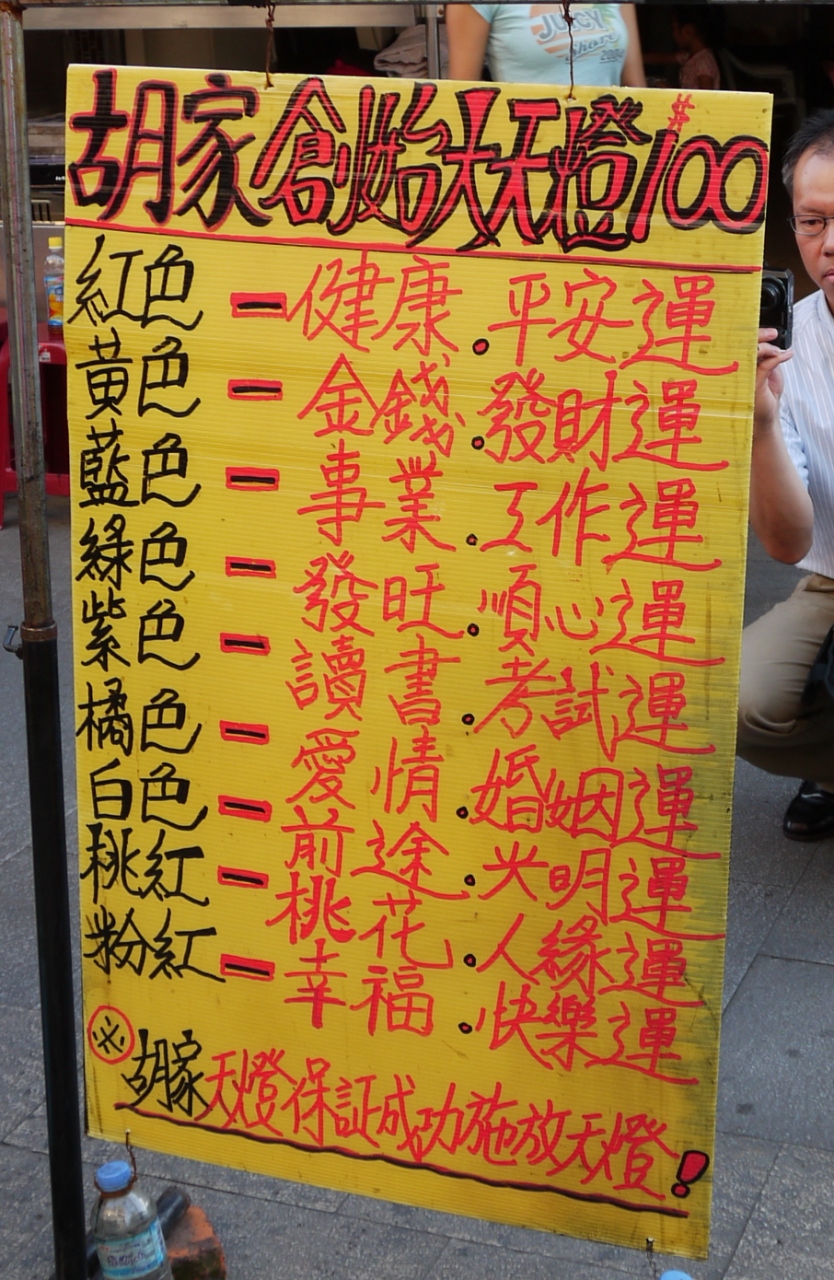 JUICY
Shore
2004
胡家創始大天燈$100
紅色-健康.平安運
黃色-金錢.發財運
藍色-事業.工作運
綠色-發旺.順心運
紫色-讀書.考試運
橘色-愛情.婚姻運
白色-前途.光明運
桃紅-桃花.人緣運
粉紅-幸福.快樂運
※胡家天燈保証成功施放天燈!